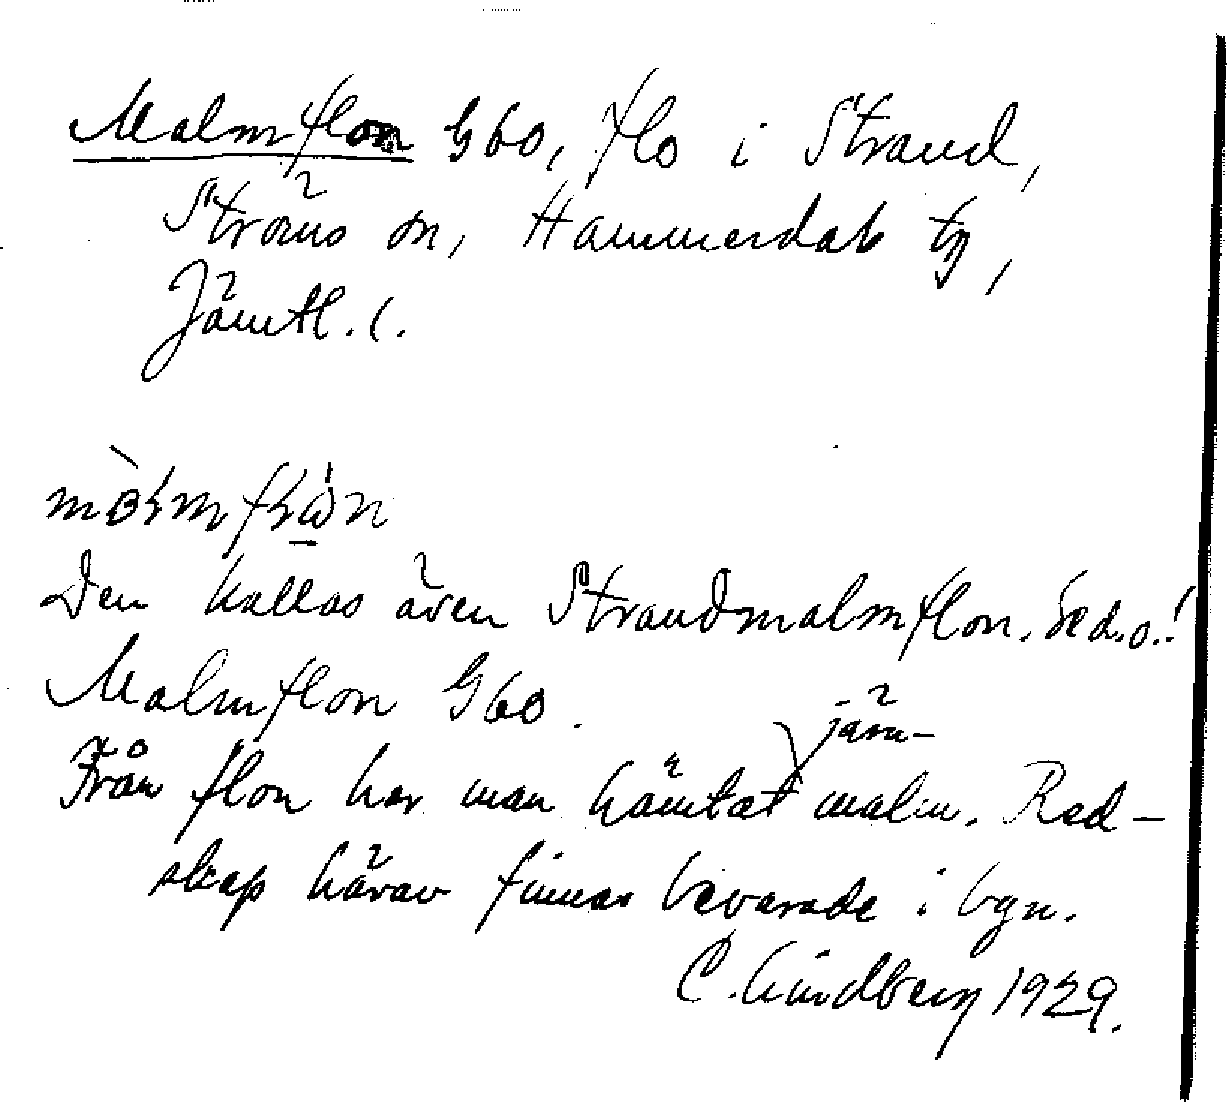 Malmflon G60, flo i Strand,
Ströms sn, Hammerdals tg,
Jämtl. l.
Den kallas även Strandmalmflon. Se d.o.!
Malmflon G60.
järn-
Från flon har man hämtat malm. Red-
skap härav finnas bevarade i byn.
C. Lindberg 1929.